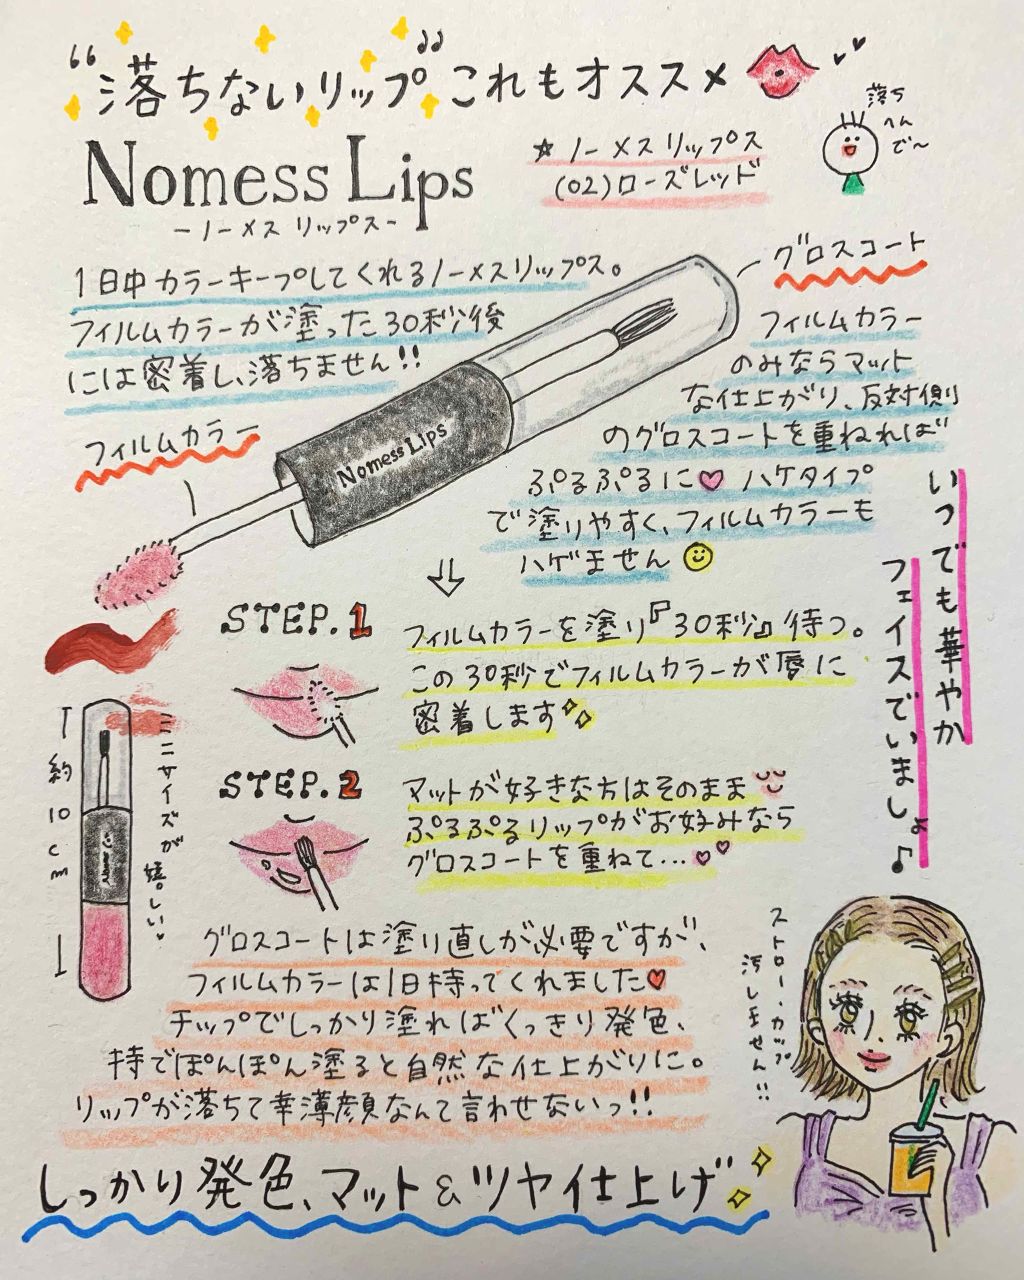 “落ちないリップ”これもオススメ
落ち
へん
で〜
Nomess Lips
-ノーメス リップス-
☆ ノーメスリップス
(02)ローズレッド
1日中カラーキープしてくれるノーメスリップス。
フィルムカラーが塗った30秒後
には密着し、落ちません!!
フィルムカラー
Nomess Lips
グロスコート
フィルムカラー
のみならマット
な仕上がり、反対側
のグロスコートを重ねれば
ぷるぷるに♡ ハケタイプ
で塗りやすく、フィルムカラーも
ハゲません
いつでも華やか
フェイスでいましょ♪
STEP.1
フィルムカラーを塗り『30秒』待つ。
この30秒でフィルムカラーが唇に
密着します
STEP.2
マットが好きな方はそのまま
ぷるぷるリップがお好みなら
グロスコートを重ねて...♡♡
約10cm
ミニサイズが
嬉しい♥
グロスコートは塗り直しが必要ですが、
フィルムカラーは1日持ってくれました♥
チップでしっかり塗ればくっきり発色、
持でぽんぽん塗ると自然な仕上がりに。
リップが落ちて幸薄顔なんて言わせないっ!!
ストロー・カップ
汚しません!!
しっかり発色、マット&ツヤ仕上げ